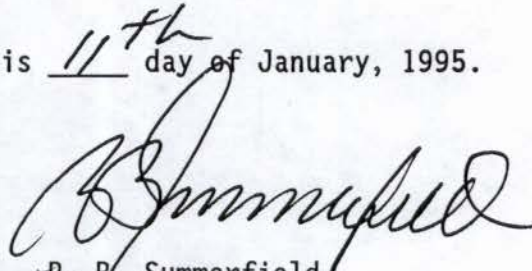 is 11th day of January, 1995.
Summerfield
Summerfield